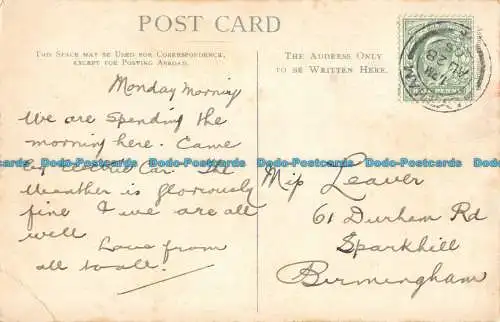 POST CARD
THIS SPACE MAY BE USED FOR CORRESPONDENCE,
EXCEPT FOR POSTING ABROAD.
THE ADDRESS ONLY
TO BE WRITTEN HERE.
Monday Morning
We are spending the
morning here. Came
by Electric Car. The
weather is gloriously
fine & we are all
well
Love from
all to all.
Miss Leaver
61 Durham Rd
Sparkhill
Birmingham
Dodo-Postcards Dodo-Postcards Dodo-Postcards Dodo-Postcards Dodo-Postcards